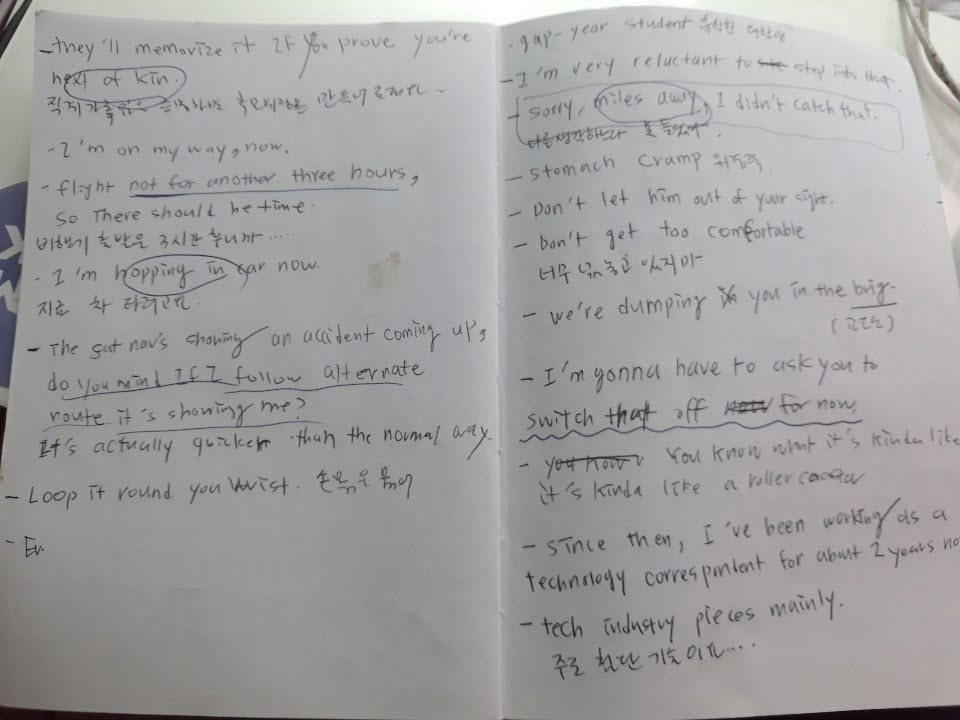 - they'll memorize it If you prove you're
next of kin.
- I'm on my way, now.
- flight not for another three hours,
so There should be time.
비행기 출발은 3시간 후니까....
- I'm hopping in car now.
지금 차 타려고요.
- The sat nav's showing an accident coming up,
do you mind If I follow alternate
route it's showing me?
It's actually quicker than the normal way.
- Loop it round you wrist. 손목은 묶어
- Ev.
. gap-year student 휴학한 대학생
- I'm very reluctant to step into that.
sorry, miles away, I didn't catch that.
다른생각하느라 못 들었어.
- stomach cramp 위경련
- Don't let him out of your sight.
- Don't get too comfortable
너무 넋놓고 있지마
- we're dumping you in the brig.
- I'm gonna have to ask you to
switch that off now for now.
- you know You know what it's kinda like
it's kinda like a roller coaster
- since then, I've been working as a
technology correspondent for about 2 years no
- tech industry pieces mainly.
주로 첨단 기술이요....